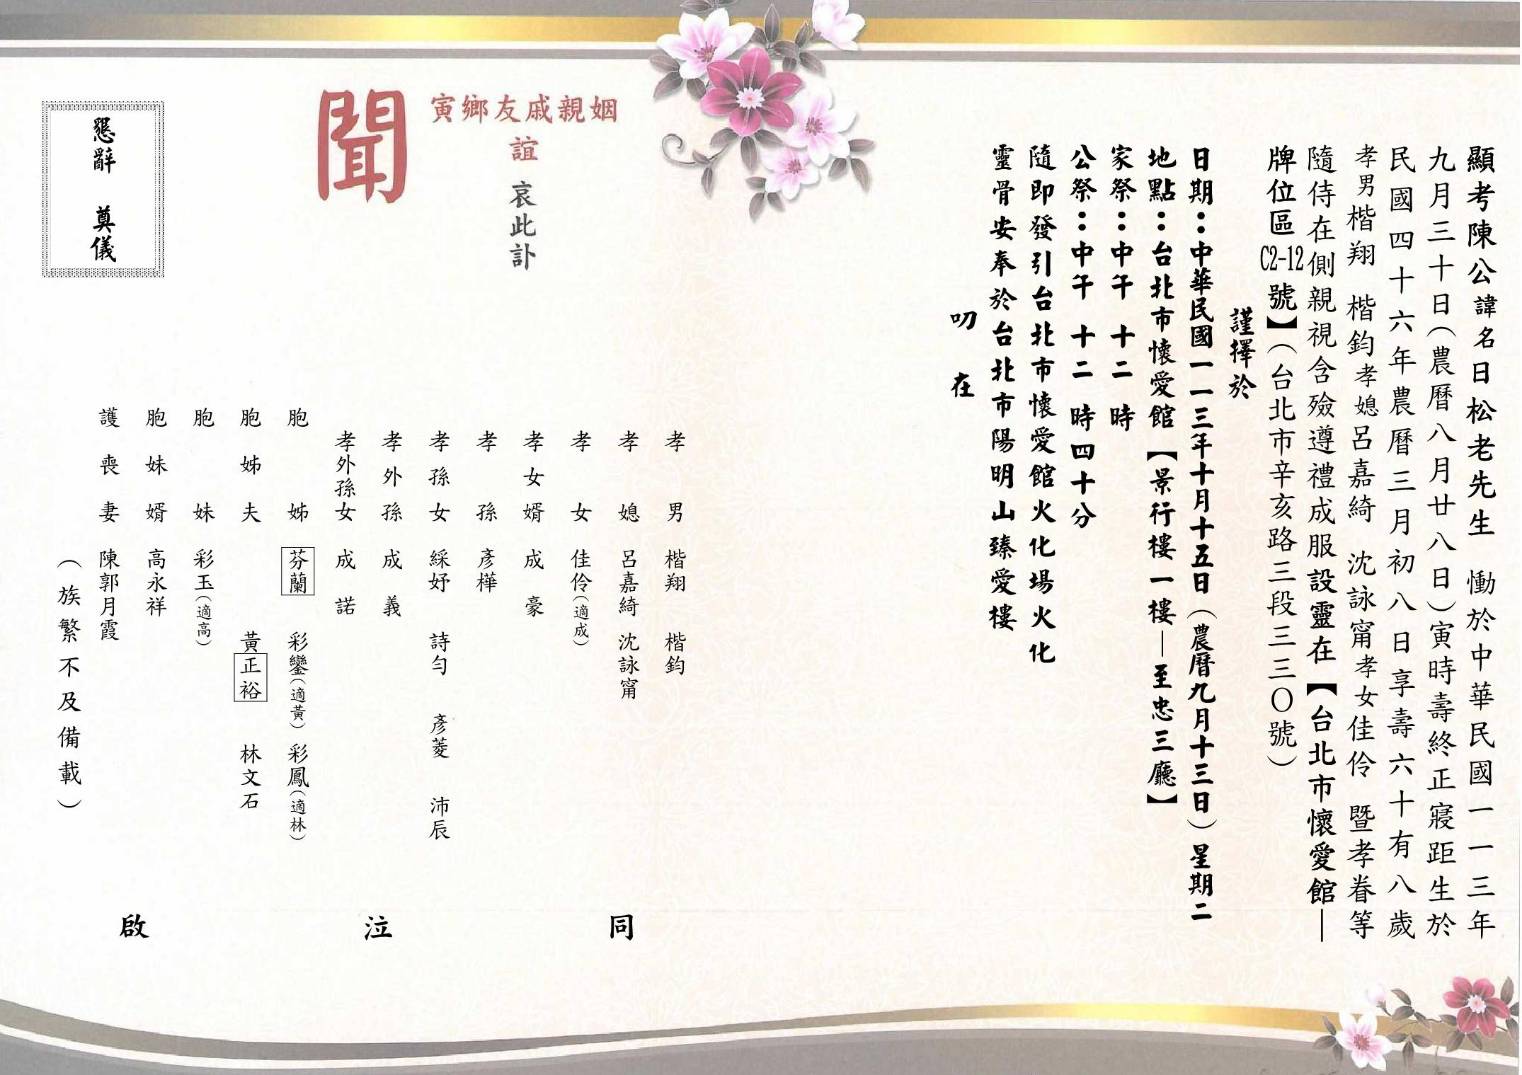 顯考陳公諱名日松老先生 慟於中華民國一一三年
九月三十日(農曆八月廿八日)寅時壽終正寢距生於
民國四十六年農曆三月初八日享壽六十有八歲
孝男楷翔 楷鈞孝媳呂嘉綺 沈詠甯孝女佳伶 暨孝眷等
隨侍在側親視含殮遵禮成服設靈在【台北市懷愛館—
牌位區C2-12號】(台北市辛亥路三段三三〇號)
謹擇於
日期：中華民國一一三年十月十五日(農曆九月十三日)星期二
地點：台北市懷愛館【景行樓一樓—至忠三廳】
家祭：中午 十二 時
公祭：中午 十二 時四十分
隨即發引台北市懷愛館火化場火化
靈骨安奉於台北市陽明山臻愛樓
叨 在
寅鄉友戚親姻
誼 哀此訃
聞
孝男 楷翔 楷鈞
孝媳 呂嘉綺 沈詠甯
孝女 佳伶(適成)
孝女婿 成豪
孝孫 彥樺
孝孫女 綵妤 詩勻 彥菱 沛辰
孝外孫 成義
孝外孫女 成諾
胞姊 芬蘭 彩鑾(適黃) 彩鳳(適林)
胞姊夫 黃正裕 林文石
胞妹 彩玉(適高)
胞妹婿 高永祥
護喪妻 陳郭月霞
(族繁不及備載)
同 泣 啟
懇辭 奠儀